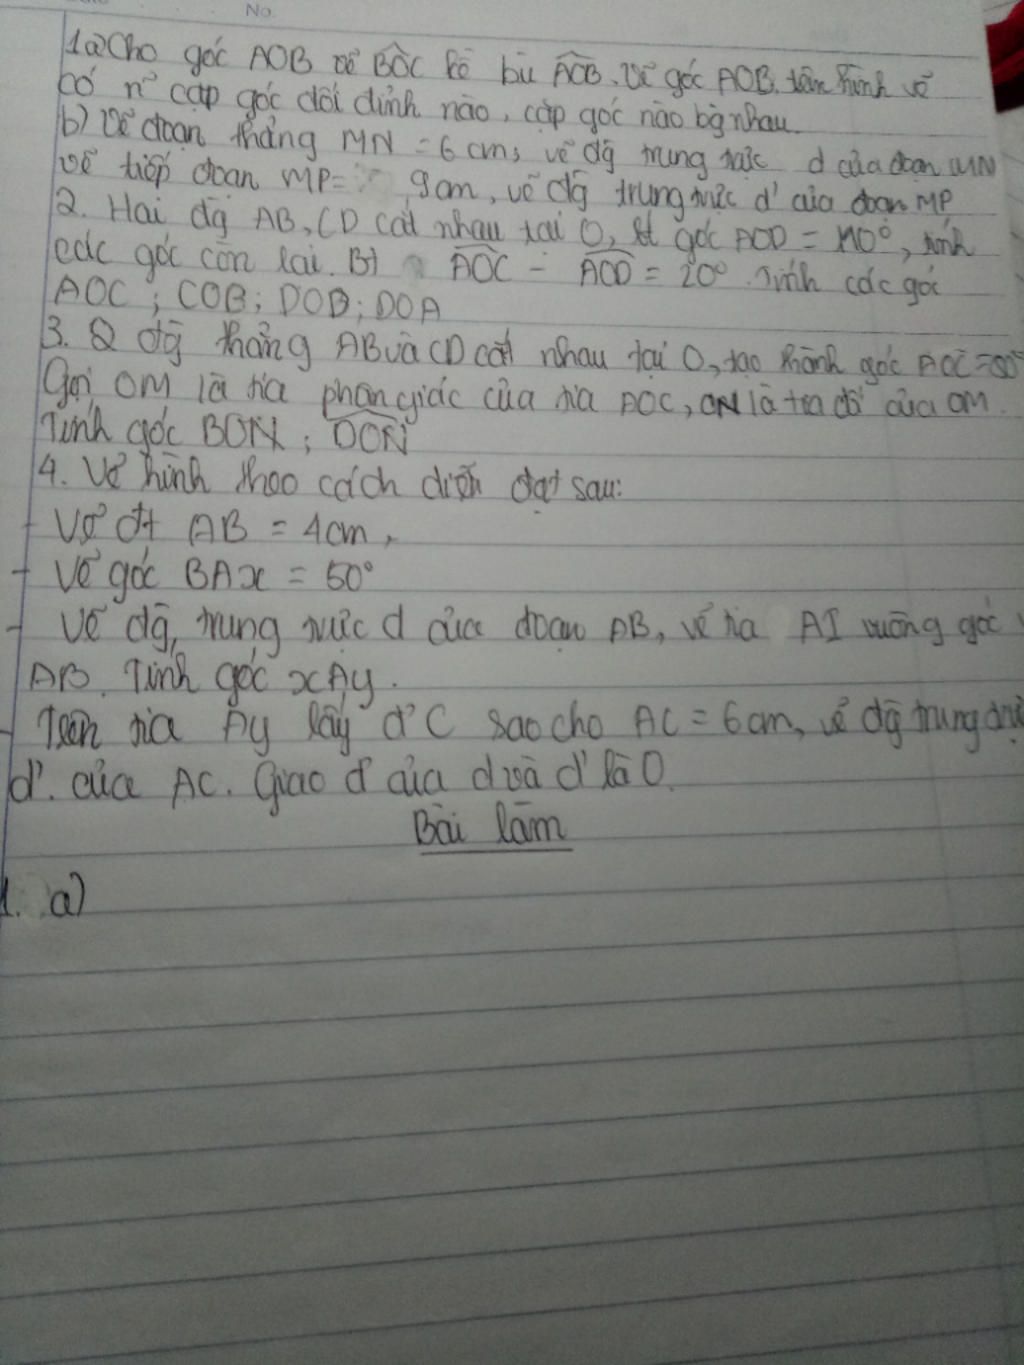 No.
1a) Cho góc AOB vẽ BOC kề bù AOB. Vẽ góc AOB, trên hình vẽ
có n~ cặp góc đối đỉnh nào, cặp góc nào bg nhau.
b) Vẽ đoạn thẳng MN = 6cm, vẽ đg trung trực d của đoạn MN
vẽ tiếp đoạn MP= 9cm, vẽ đg trung trực d' của đoạn MP
2. Hai đg AB, CD cắt nhau tại O, góc AOD = 110°, tính
các góc còn lại. Bt AOC - AOD = 20° Tính các góc
AOC ; COB ; DOB ; DOA
3. 2 đg thẳng AB và CD cắt nhau tại O, tạo thành góc AOC =
Gọi OM là tia phân giác của tia AOC, ON là tia đối của OM.
Tính góc BON ; DON
4. Vẽ hình theo cách diễn đạt sau:
- Vẽ đt AB = 4cm,
- Vẽ góc BAx = 50°
- Vẽ đg, trung trực d của đoạn AB, vẽ tia AI vuông góc
AB. Tính góc xAy.
- Trên tia Ay lấy đ' C sao cho AC = 6cm, vẽ đg trung
d'. của AC. Giao đ' của d và d' là O.
Bài làm
1. a)